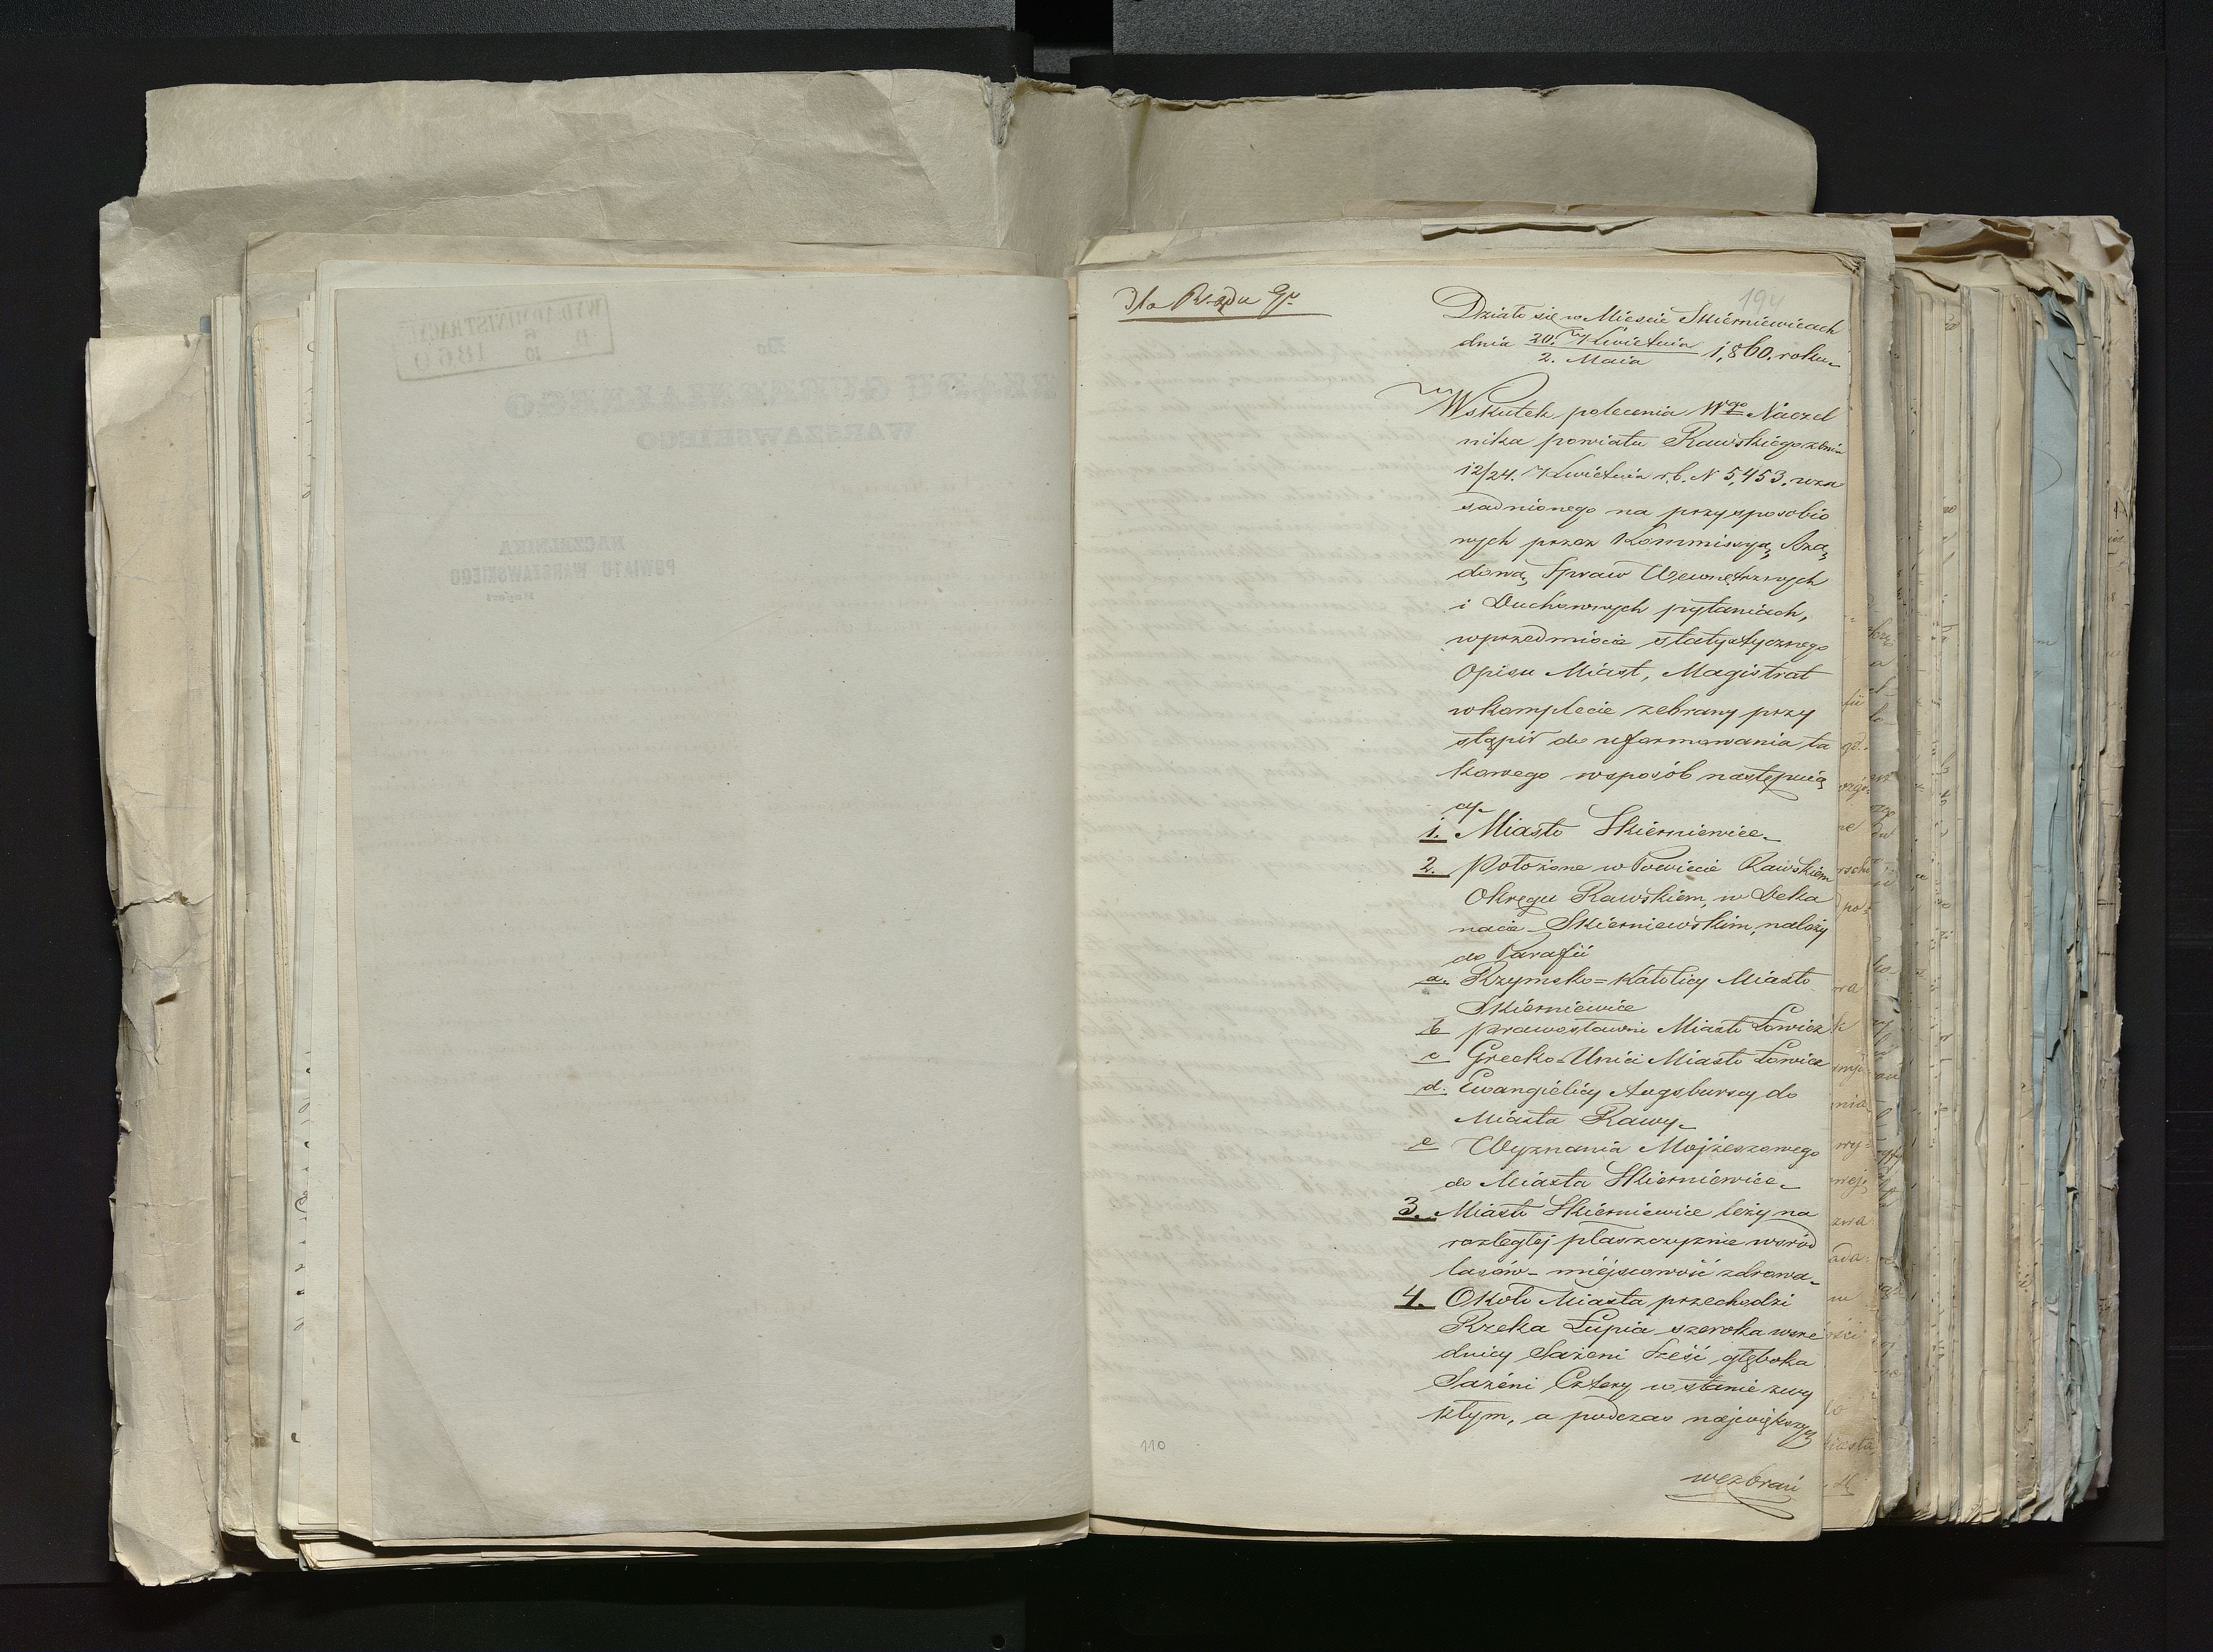 Dla Rządu Gu
194
Działo się w Mieście Skierniewicach
dnia 20. Kwietnia / 2. Maia 1,860. roku
Wskutek polecenia Wgo Naczel
nika powiatu Rawskiego z dnia
12/24. Kwietnia r.b. N 5,453. uza
sadnionego na przysposobio
nych przez Kommissyą Rzą
dową Spraw Wewnętrznych
i Duchownych pytaniach,
wprzedmiocie statystycznego
Opisu Miast, Magistrat
wkomplecie zebrany przy
stąpił do uformowania ta
kowego wsposób następuią
cy
1. Miasto Skierniewice
2. Położone w Powiecie Rawskiem
Okręgu Rawskiem, w Deka
nacie Skierniewskim, należy
do Parafii
a. Rzymsko=Katolicy Miasto
Skierniewice
b prawosławni Miasto Łowicz
c Grecko-Unici Miasto Łowicz
d. Ewangielicy Augsburscy do
Miasta Rawy
e Wyznania Mojżeszowego
do Miasta Skierniewice
3. Miasto Skierniewice leży na
rozległej płaszczyznie wsród
lasów - miejscowość zdrowa
4. Około Miasta przechodzi
Rzeka Łupia szeroka wsre
dnicy Sażeni Sześć głęboka
Sażeni Cztery w stanie zwy
kłym, a podczas największych
wezbrań
110